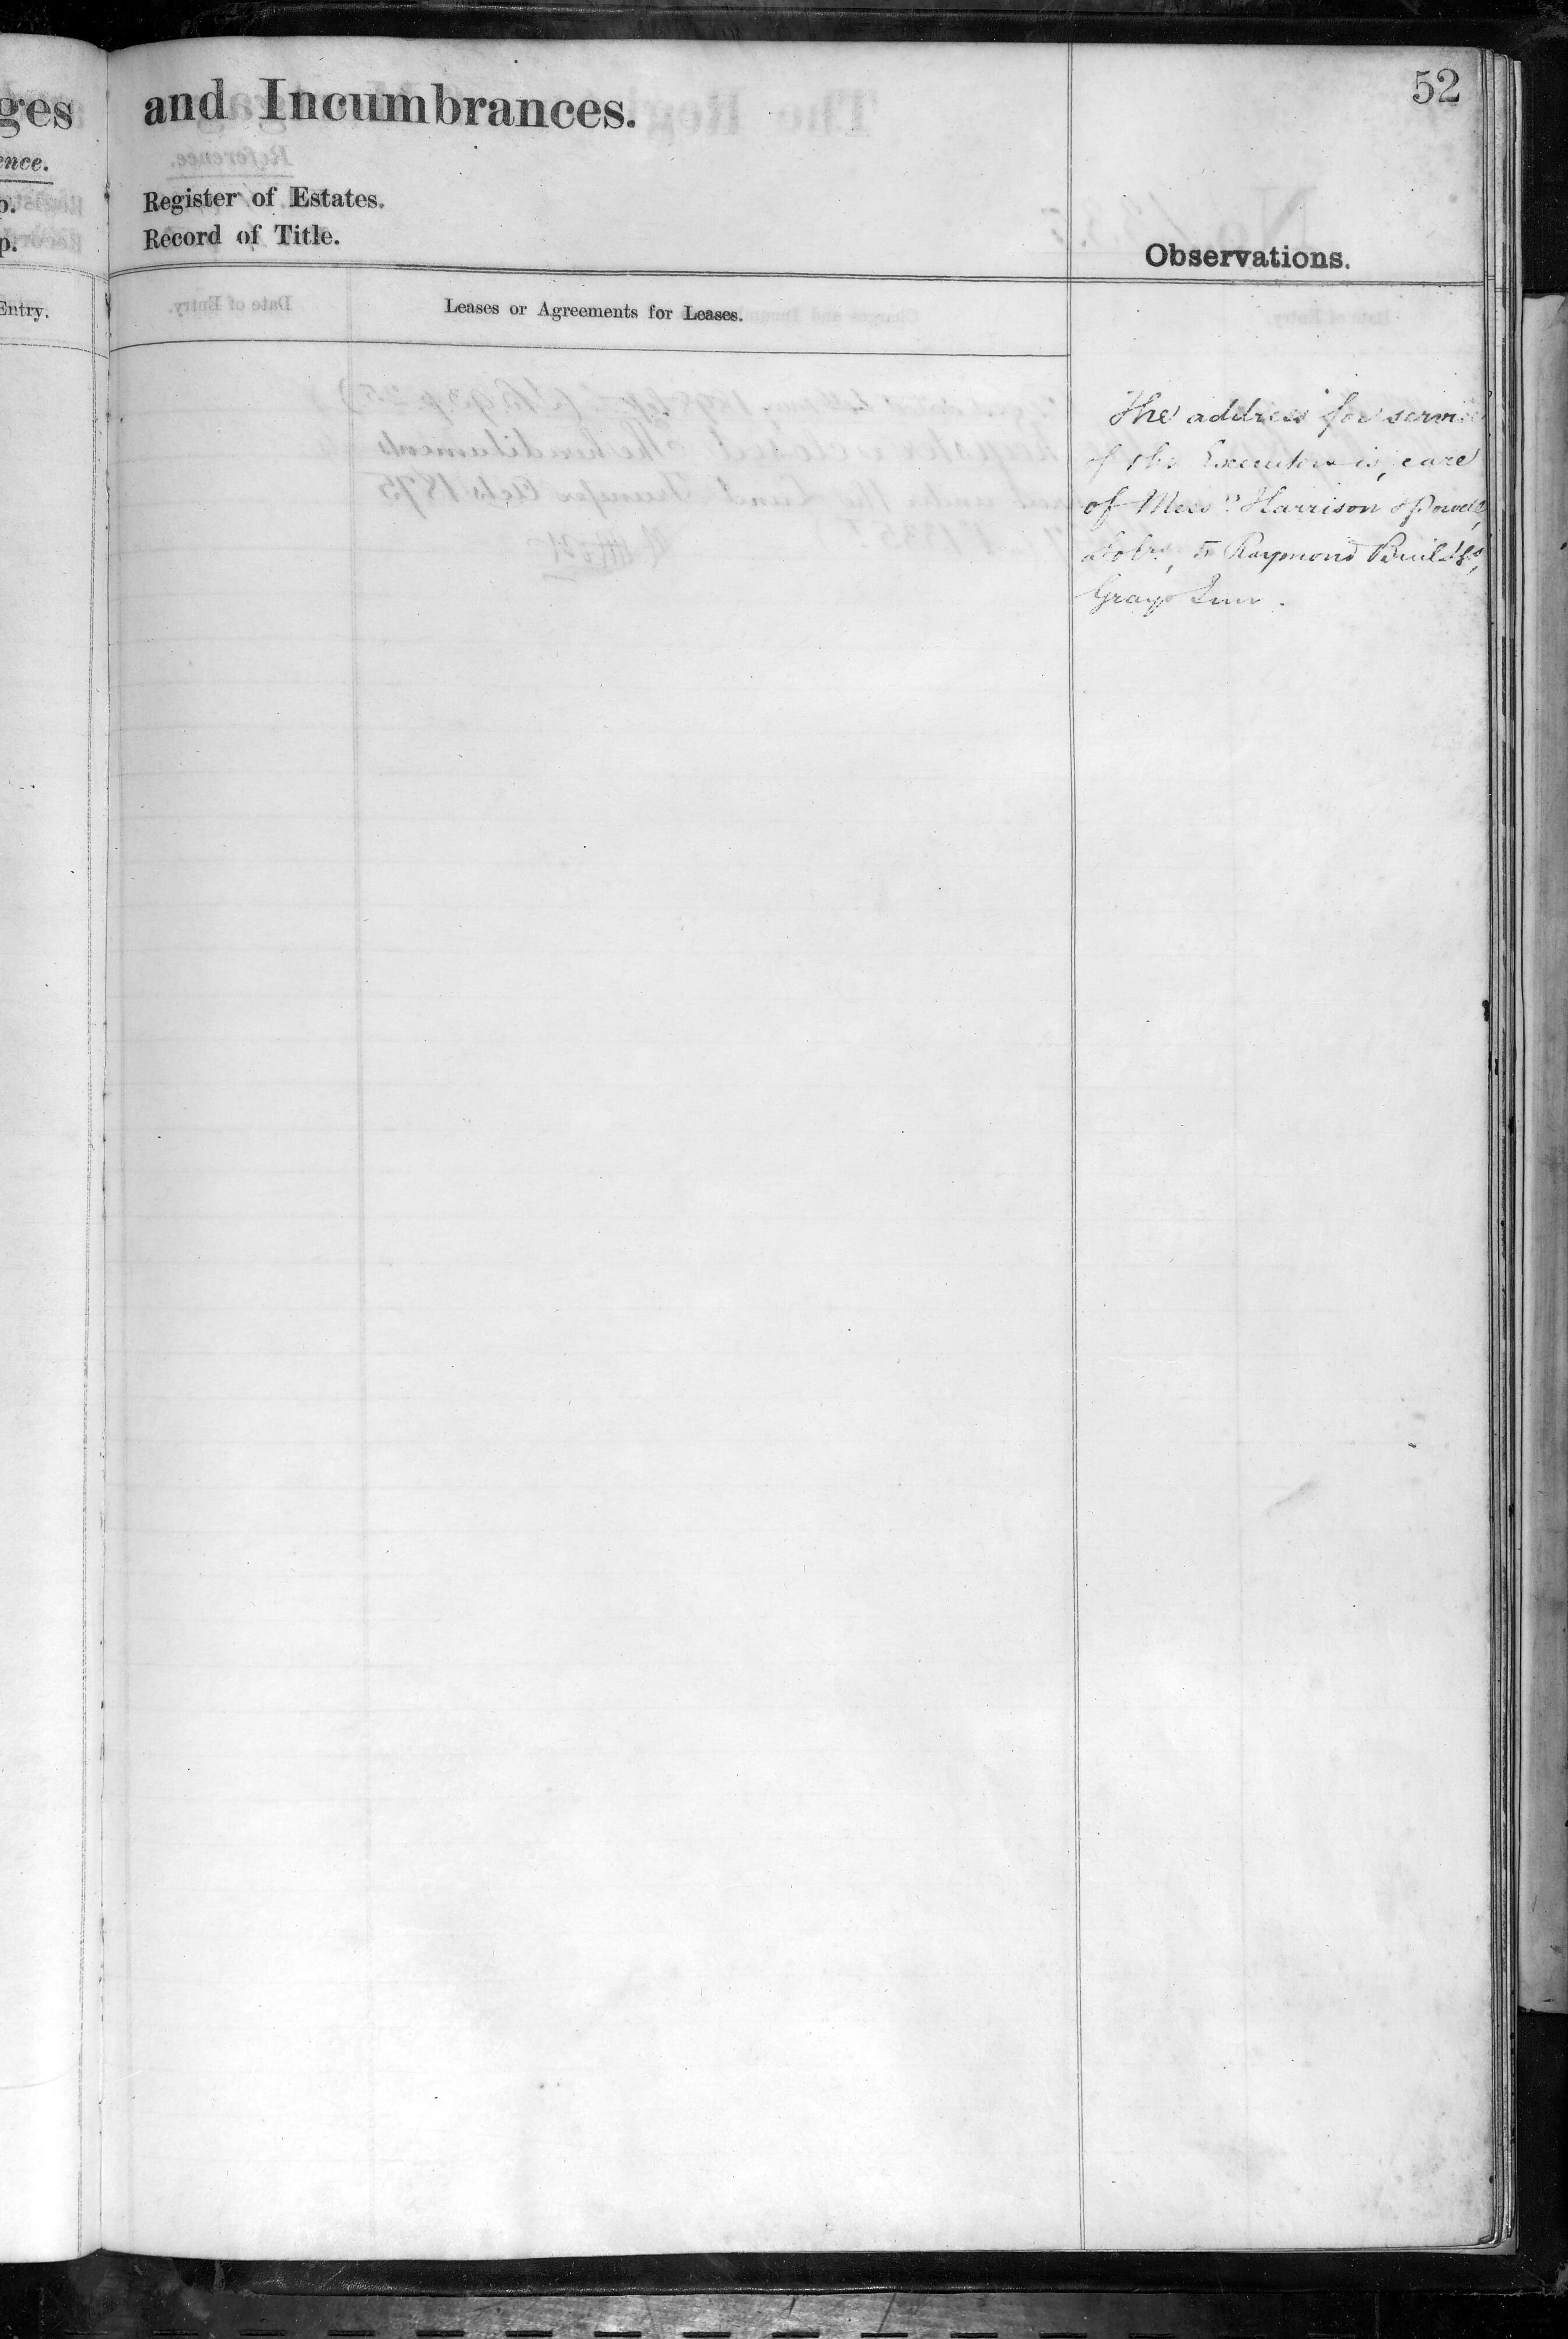 52
ges and Incumbrances.
ence.
Register of Estates.
Record of Title.
Observations.
Entry.
Leases or Agreements for Leases.
The address for service
of the Executors is, care
of Mess.rs Harrison & Powell,
Solrs, 5 Raymond Buildgs,
Grays Inn.